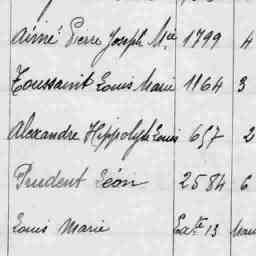 Aimé Pierre Joseph Mie 1799 4
Toussaint Louis Marie 1164 3
Alexandre Hippolyte Louis 657 2
Prudent Léon 2584 6
Louis Marie Exte 13